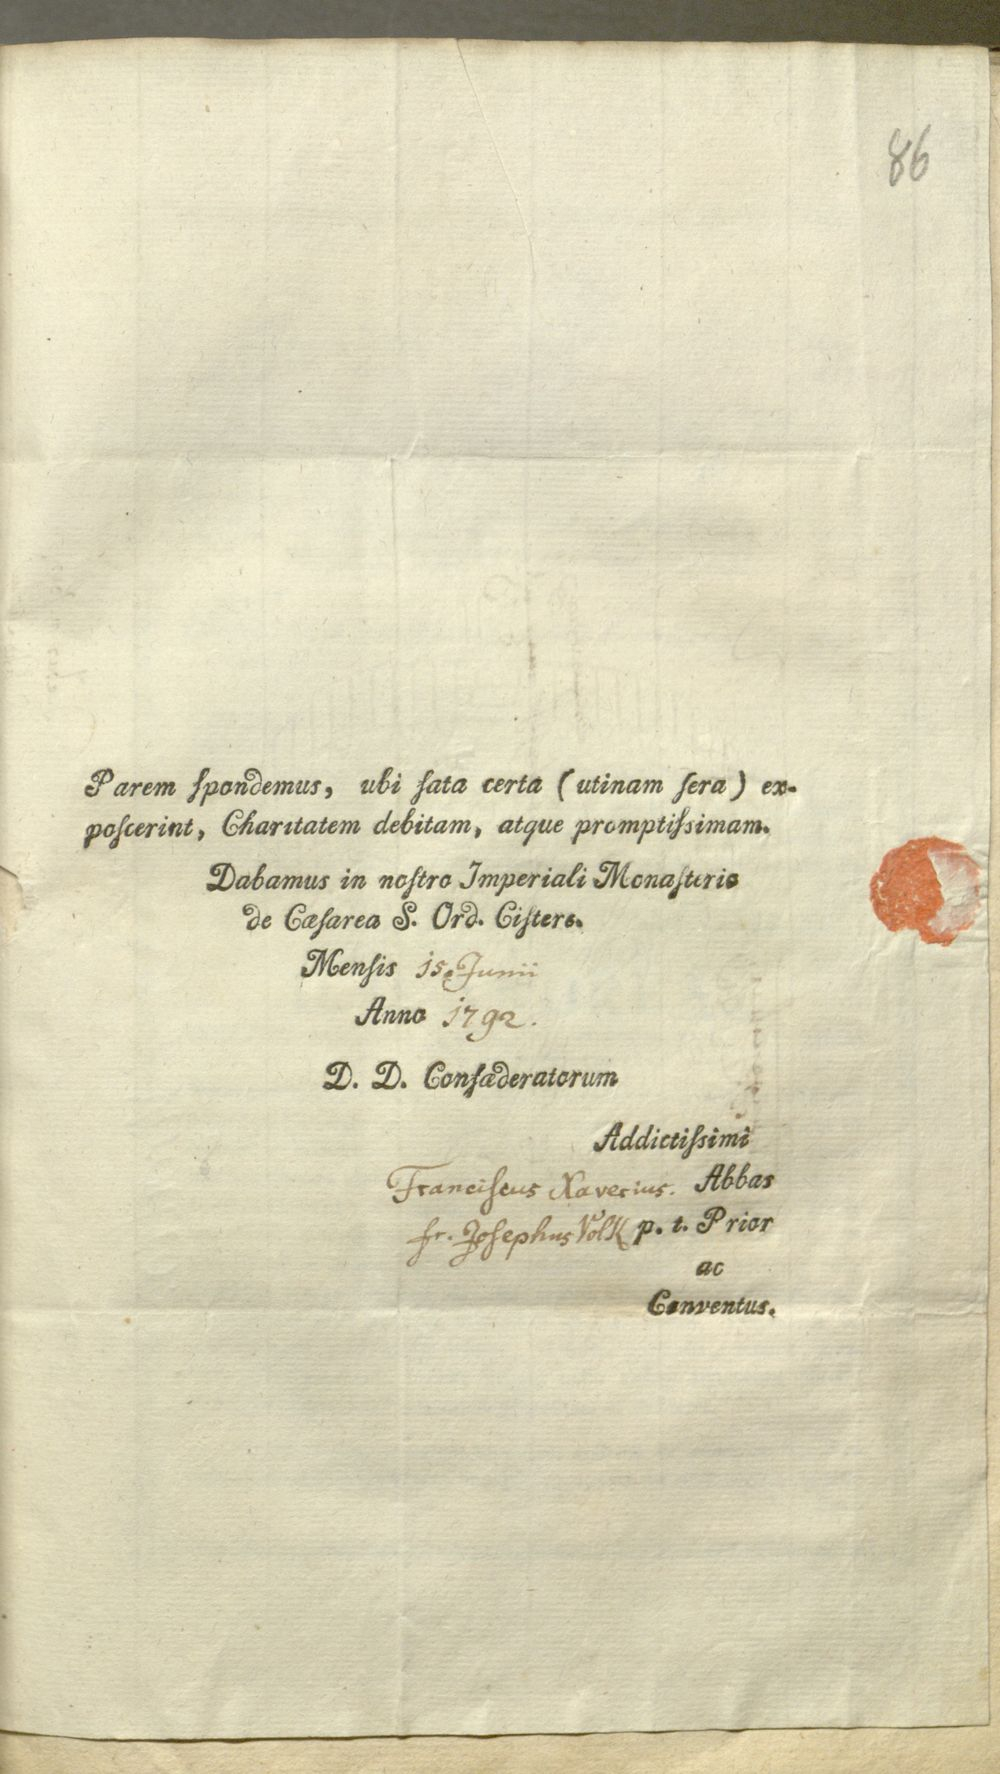 86
Parem ſpondemus, ubi fata certa (utinam ſera) ex-
poſcerint, Charitatem debitam, atque promptiſsimam.
Dabamus in noſtro Imperiali Monaſterio
de Cæſarea S. Ord. Ciſterc.
Menſis 15. Junii
Anno 1792.
D. D. Confœderatorum
Addictiſsimi
Franciſcus Xaverius. Abbas
fr. Joſephus Volk p. t. Prior
ac
Conventus.